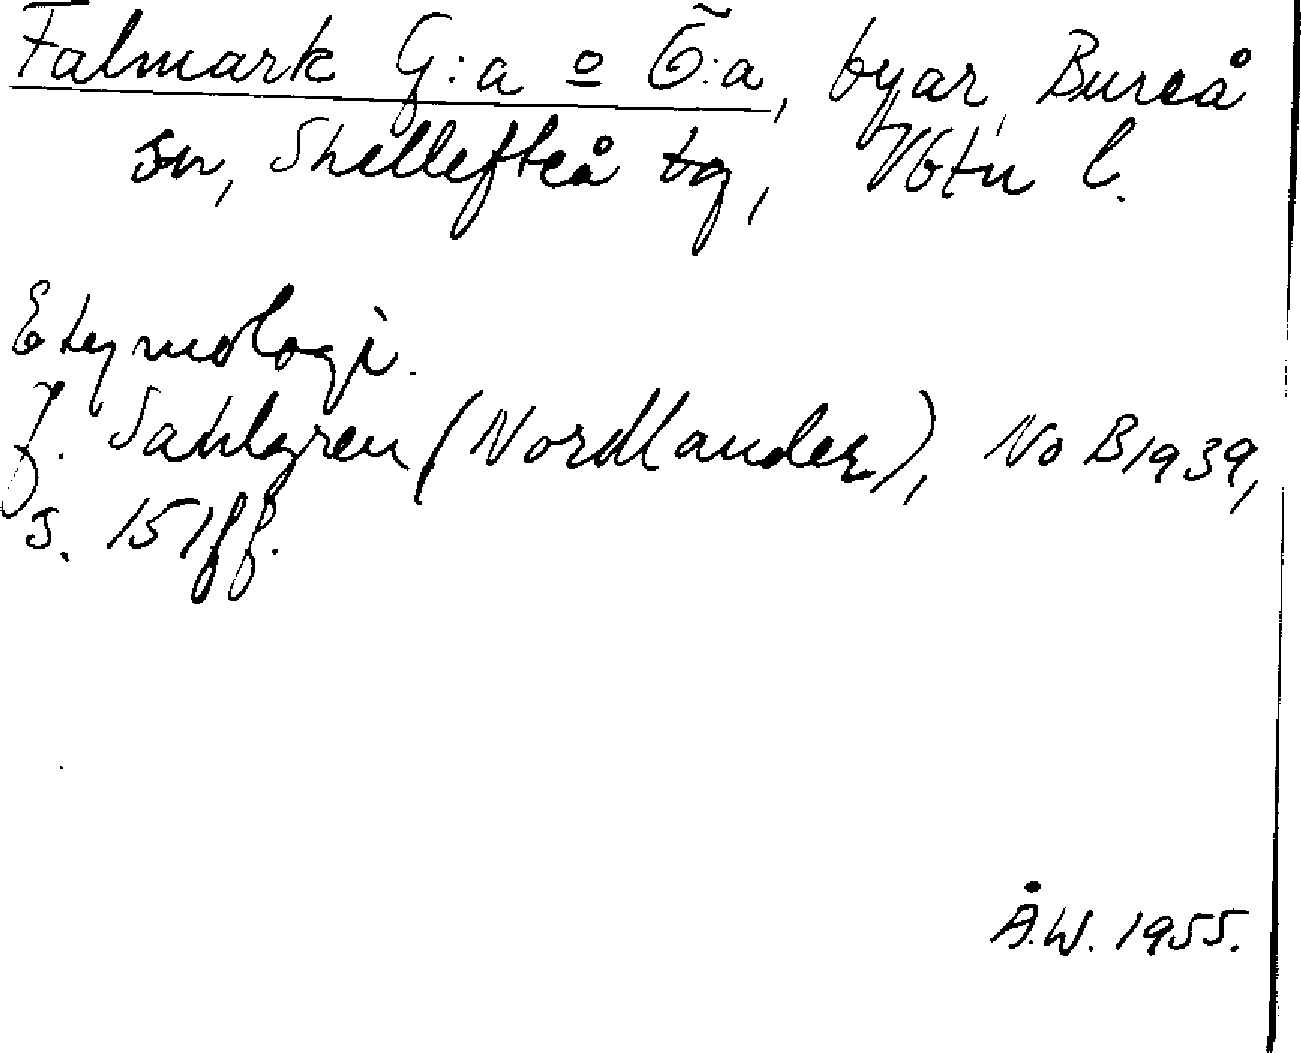 Falmark G:a o Ö:a, byar, Bureå
sn, Skellefteå tg, Vbtn l.
Etymologi.
J. Sahlgren (Nordlander), NoB 1939,
s. 151ff.
Å.W. 1955.